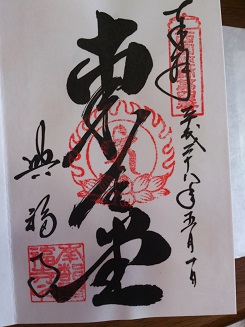 奉拝
平成二十八年五月一日
東金堂
興福寺